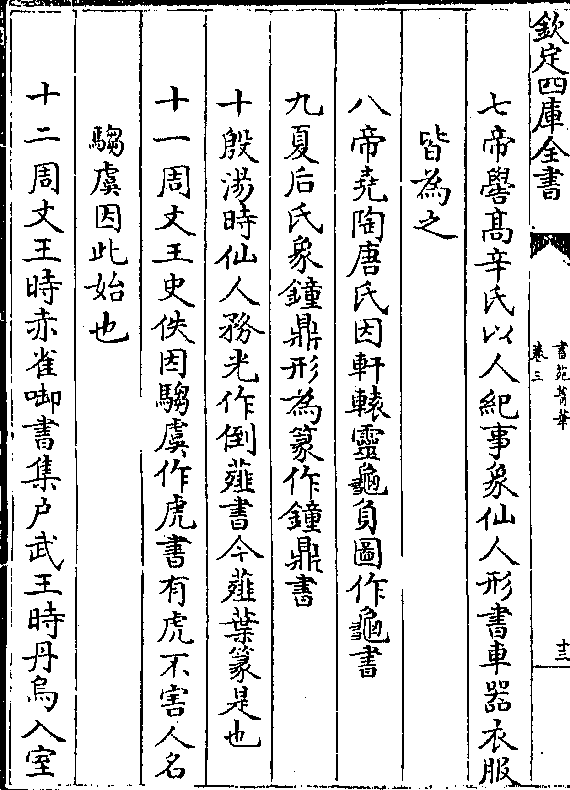 欽定四庫全書
書苑菁華
卷三
十三
七帝嚳髙辛氏以人紀事象仙人形書車器衣服
皆為之
八帝堯陶唐氏因軒轅靈龜負圖作龜書
九夏后氏象鐘鼎形為篆作鐘鼎書
十殷湯時仙人務光作倒薤書今薤葉篆是也
十一周文王史佚因騶虞作虎書有虎不害人名
騶虞因此始也
十二周文王時赤雀啣書集户武王時丹烏入室